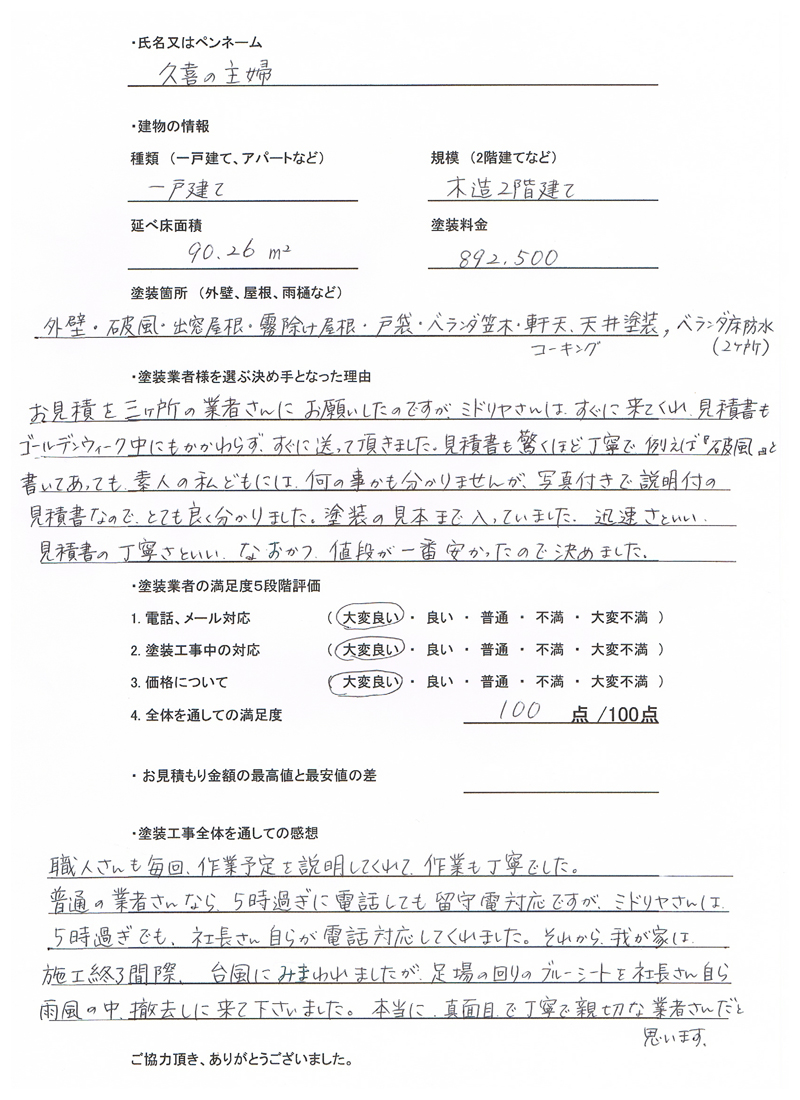 ・氏名又はペンネーム
久喜の主婦
・建物の情報
種類（一戸建て、アパートなど）
規模（2階建てなど）
一戸建て
木造2階建て
延べ床面積
塗装料金
90.26 m²
892,500
塗装箇所（外壁、屋根、雨樋など）
外壁・破風・出窓屋根・霧除け屋根・戸袋・ベランダ笠木・軒天、天井塗装，ベランダ床防水
コーキング
(2ケ所)
・塗装業者様を選ぶ決め手となった理由
お見積を三ヶ所の業者さんにお願いしたのですが、ミドリヤさんは、すぐに来てくれ、見積書も
ゴールデンウィーク中にもかかわらず、すぐに送って頂きました。見積書も驚くほど丁寧で、例えば『破風』と
書いてあっても、素人の私どもには、何の事かも分かりませんが、写真付きで説明付の
見積書なので、とても良く分かりました。塗装の見本まで入っていました、迅速さといい、
見積書の丁寧さといい、なおかつ、値段が一番安かったので決めました。
・塗装業者の満足度5段階評価
1. 電話、メール対応 （ 大変良い ・ 良い ・ 普通 ・ 不満 ・ 大変不満 ）
2. 塗装工事中の対応 （ 大変良い ・ 良い ・ 普通 ・ 不満 ・ 大変不満 ）
3. 価格について （ 大変良い ・ 良い ・ 普通 ・ 不満 ・ 大変不満 ）
4. 全体を通しての満足度 100 点 /100点
・ お見積もり金額の最高値と最安値の差
・塗装工事全体を通しての感想
職人さんも毎回、作業予定を説明してくれて、作業も丁寧でした。
普通の業者さんなら、5時過ぎに電話しても留守電対応ですが、ミドリヤさんは、
5時過ぎでも、社長さん自らが電話対応してくれました。それから、我が家は、
施工終了間際、台風にみまわれましたが、足場の回りのブルーシートを社長さん自ら
雨風の中、撤去しに来て下さいました。本当に、真面目で丁寧で親切な業者さんだと
思います。
ご協力頂き、ありがとうございました。